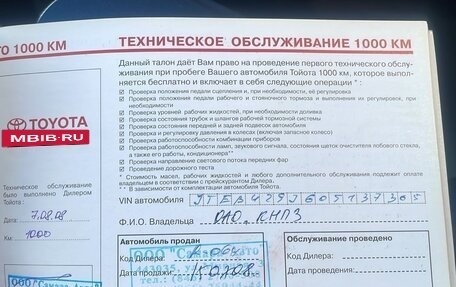 ТО 1000 КМ
ТЕХНИЧЕСКОЕ ОБСЛУЖИВАНИЕ 1000 КМ
TOYOTA
MBIB.RU
Техническое обслуживание
было выполнено Дилером
Тойота :
Дата: 7.08.08
Км: 1000
Данный талон даёт Вам право на проведение первого технического обслу-
живания при пробеге Вашего автомобиля Тойота 1000 км, которое выпол-
няется бесплатно и включает в себя следующие операции * :
Проверка положения педали сцепления и, при необходимости, её регулировка
Проверка положения педали рабочего и стояночного тормоза и выполнения их регулировок, при
необходимости
Проверка уровней рабочих жидкостей, при необходимости доливка
Проверка состояния трубок и шлангов рабочей тормозной системы
Проверка состояния передней и задней подвесок автомобиля
Проверка и регулировку давления в колесах (включая запасное колесо)
Проверка работоспособности комбинации приборов
Проверка работоспособности ламп, звукового сигнала, щеток очистителя и омывателя лобового
стекла, а также его работы, кондиционера**
Проверка направление светового потока передних фар
Проведение дорожного теста
* Стоимость масел, рабочих жидкостей и охлаждения подлежит оплате
владельцем в соответствии с прейскурантом Дилера.
** В зависимости от комплектации автомобиля Тойота.
VIN автомобиля JTEB429J605137365
Ф.И.О. Владельца ОАО КНПЗ
Автомобиль продан
Код Дилера:
Дата продажи: 15.07.08
ООО "Самара Авто"
443035
Обслуживание проведено
Код Дилера:
Дата проведения: